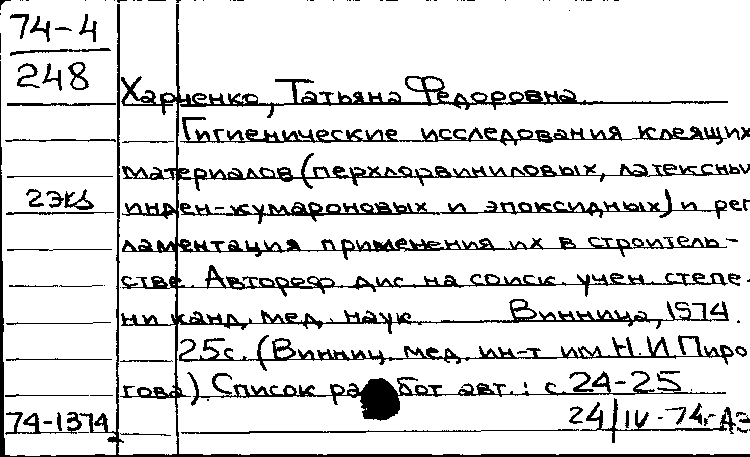 74-4
248
Харченко, Татьяна Федоровна.
Гигиенические исследования клеящих
материалов (перхлорвиниловых, латексны
2экз
инден-кумароновых и эпоксидных) и рег
ламентация применения их в строитель-
стве. Автореф. дис. на соиск. учен. степе-
ни канд. мед. наук. – Винница, 1974.
25с. (Винниц. мед. ин-т им Н.И. Пиро
гова). Список работ авт.: с. 24-25
74-1374
24/IV-74г. АЗ